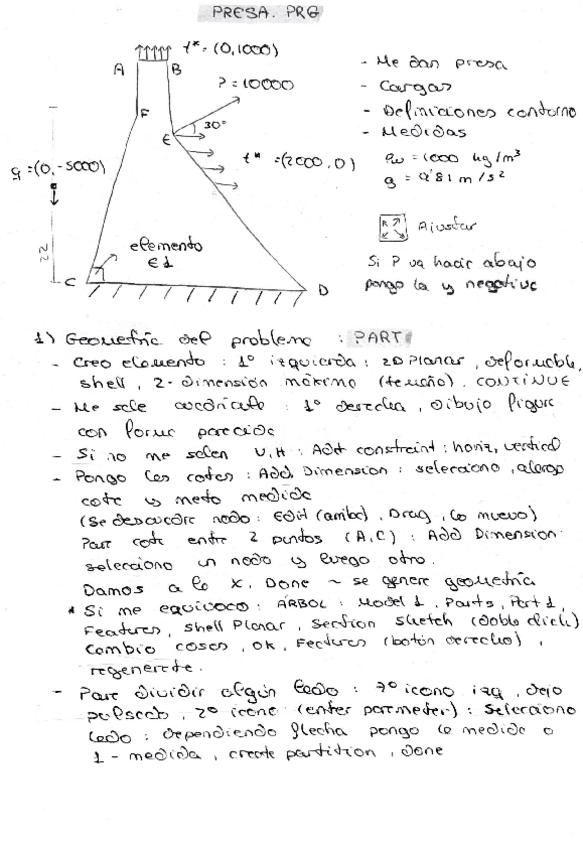 PRESA. PRG
t* = (0,1000)
A
B
P = 10000
F
30°
E
t* = (2000,0)
q = (0,-5000)
22
elemento
E1
C
D
- Me dan presa
- Cargas
- Definiciones contorno
- Medidas
ρw = 1000 kg/m³
g = 9'81 m/s²
Ajustar
Si P va hacia abajo
pongo la y negativa
1) Geometría del problema : PART
- Creo elemento : 1º izquierda : 2D Planar, deformable,
shell, 2· dimensión máxima (tamaño). CONTINUE
- Me sale cuadrícula : 1º derecha, dibujo figura
con forma parecida
- Si no me salen V, H : Add constraint : horiz, vertical
- Pongo las cotas : Add, Dimension : selecciono, alargo
cota y meto medida
(Se descuadre nodo : Edit (arriba), Drag, lo muevo)
Para cota entre 2 puntos (A,C) : Add Dimension:
selecciono un nodo y luego otro.
Damos a la X, Done ~ se genera geometría
* Si me equivoco : ÁRBOL : Model 1, Parts, Part 1,
Features, Shell Planar, Section sketch (doble click)
Cambio cosas, OK, Features (botón derecho),
regenerate.
- Para dividir algún lado : 7º icono izq, dejo
pulsado, 2º icono (enter parameter) : Selecciono
lado : dependiendo flecha pongo la medida o
1 - medida, create partition, done